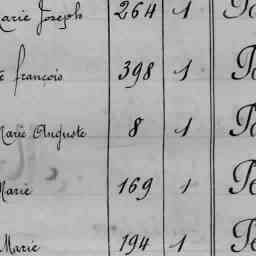 Marie Joseph 264 1
François 398 1
Marie Auguste 8 1
Marie 169 1
Marie 194 1